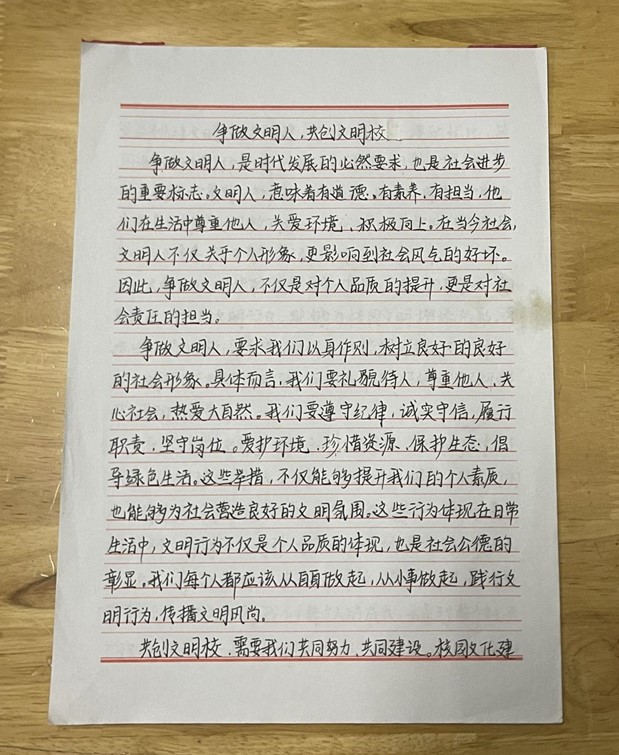 争做文明人,共创文明校
争做文明人,是时代发展的必然要求,也是社会进步
的重要标志。文明人,意味着有道德、有素养、有担当,他
们在生活中尊重他人,关爱环境、积极向上。在当今社会,
文明人不仅关乎个人形象,更影响到社会风气的好坏。
因此,争做文明人,不仅是对个人品质的提升,更是对社
会责任的担当。
争做文明人,要求我们以身作则,树立良好的良好
的社会形象。具体而言,我们要礼貌待人,尊重他人、关
心社会,热爱大自然。我们要遵守纪律,诚实守信,履行
职责、坚守岗位。爱护环境、珍惜资源、保护生态,倡
导绿色生活。这些举措,不仅能够提升我们的个人素质,
也能够为社会营造良好的文明氛围。这些行为体现在日常
生活中,文明行为不仅是个人品质的体现,也是社会公德的
彰显。我们每个人都应该从自做起,从小事做起,践行文
明行为,传播文明风尚。
共创文明校、需要我们共同努力、共同建设。校园文化建